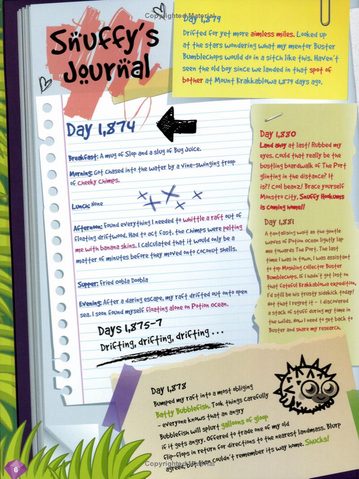 Snuffy's
Journal
Day 1,874
Breakfast: A mug of Slop and a slug of Bug Juice.
Morning: Got chased into the water by a vine-swinging troop
of Cheeky Chimps.
Lunch: None
Afternoon: Found everything I needed to whittle a raft out of
floating driftwood. Had to act fast, the Chimps were pelting
me with banana skins. I calculated that it would only be a
matter of minutes before they moved onto coconut shells.
Supper: Fried Oobla Doobla
Evening: After a daring escape, my raft drifted out into open
sea. I soon found myself floating alone on Potion Ocean.
Days 1,875-7
Drifting, drifting, drifting...
Day 1,878
Bumped my raft into a most obliging
Batty Bubblefish. Took things carefully
- everyone knows that an angry
Bubblefish will splurt gallons of gloop
if it gets angry. Offered to trade one of my old
flip-flops in return for directions to the nearest landmass. Blurp
agreed, but then couldn't remember its way home. Shucks!
Day 1,879
Drifted for yet more aimless miles. Looked up
at the stars wondering what my mentor Buster
Bumblechops would do in a sitch like this. Haven't
seen the old boy since we landed in that spot of
bother at Mount Krakkablowa 1,879 days ago.
Day 1,880
Land ahoy at last! Rubbed my
eyes. Could that really be the
bustling boardwalk of The Port
glinting in the distance? It
is?! Cool beanz! Brace yourself
Monstro City, Snuffy Hookums
is coming home!!
Day 1,881
A tantalising wind on the gentle
waves of Potion Ocean
me towards The Port. The last
time I was in town, I was assistant
to top Moshling Collector Buster
Bumblechops. If I hadn't got lost on
that fateful Krakkablowa expedition,
I'd still be his trusty sidekick today!
Not that I regret it - I discovered
a stack of stuff during my time in
the wilds. Now I need to get back to
Buster and share my research.
6
Copyrighted Material
Copyrighted Material